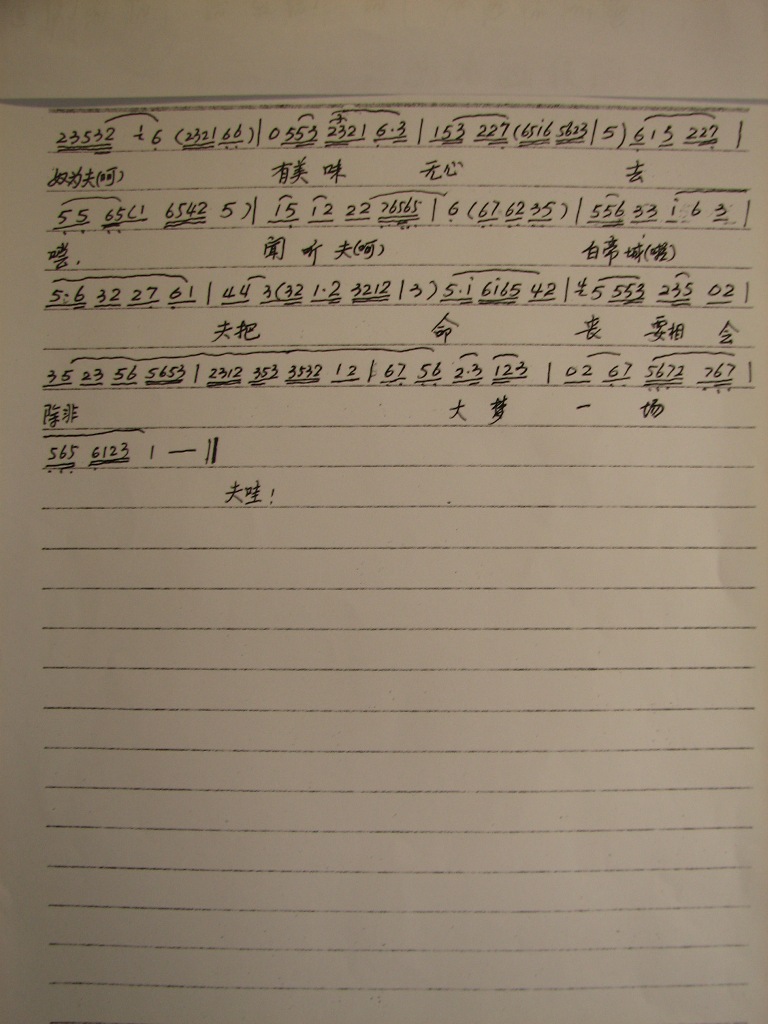 23532 6 (2321 66) | 0 553 2321 6·3 | 153 227 (6516 5623 | 5) 613 227 |
奴为夫(呵) 有美味 无心 去
55 65(1 6542 5) | 15 12 22 76565 | 6 (67 62 35) | 556 33 1 6 3 |
闻听夫(呵) 白帝城
5·6 32 27 61 | 44 3(32 1·2 3212 | 3) 5·1 6165 42 | 5 553 235 02 |
夫把 命 丧 要相会
35 23 56 5653 | 2312 353 3532 12 | 67 56 2·3 123 | 02 67 5672 767 |
除非 大梦一场
565 6123 1 — ‖
夫哇!